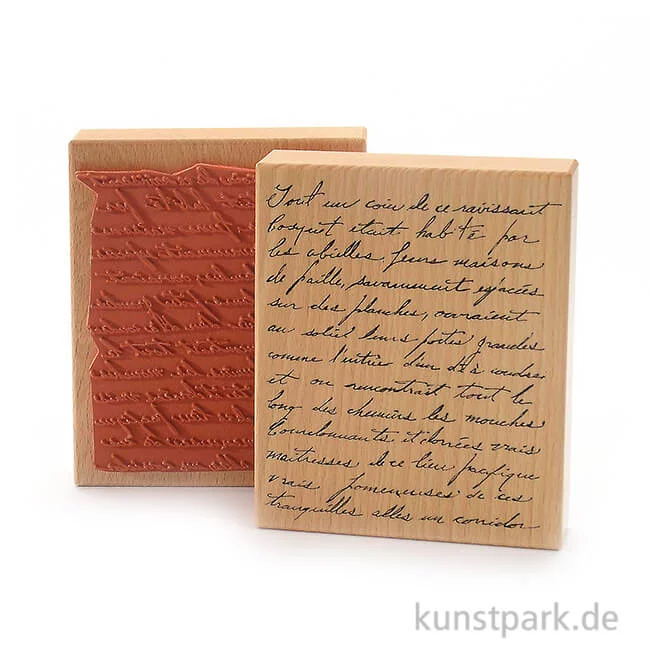 Tout un coin de ce ravissant
bosquet etait habité par
les abeilles. Leurs maisons
de paille, savamment espacées
sur des planches, ouvraient
au soleil leurs portes grandes
comme l'entrée d'un dé à coudre
et on rencontrait tout le
long des chemins les mouches
bourdonnants et dorées vrais
maitresses de ce lieu pacifique
vrais promeneuses de ces
tranquilles allés un corridor
kunstpark.de